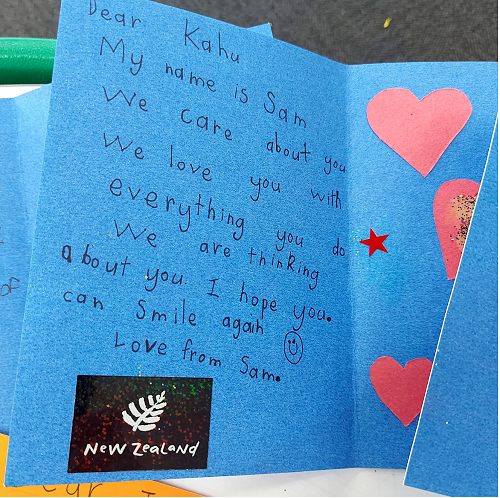 Dear Kahu
My name is Sam
We care about you
We love you with
everything you do
We are thinking
about you. I hope you.
can smile again
Love from Sam.
New Zealand
of